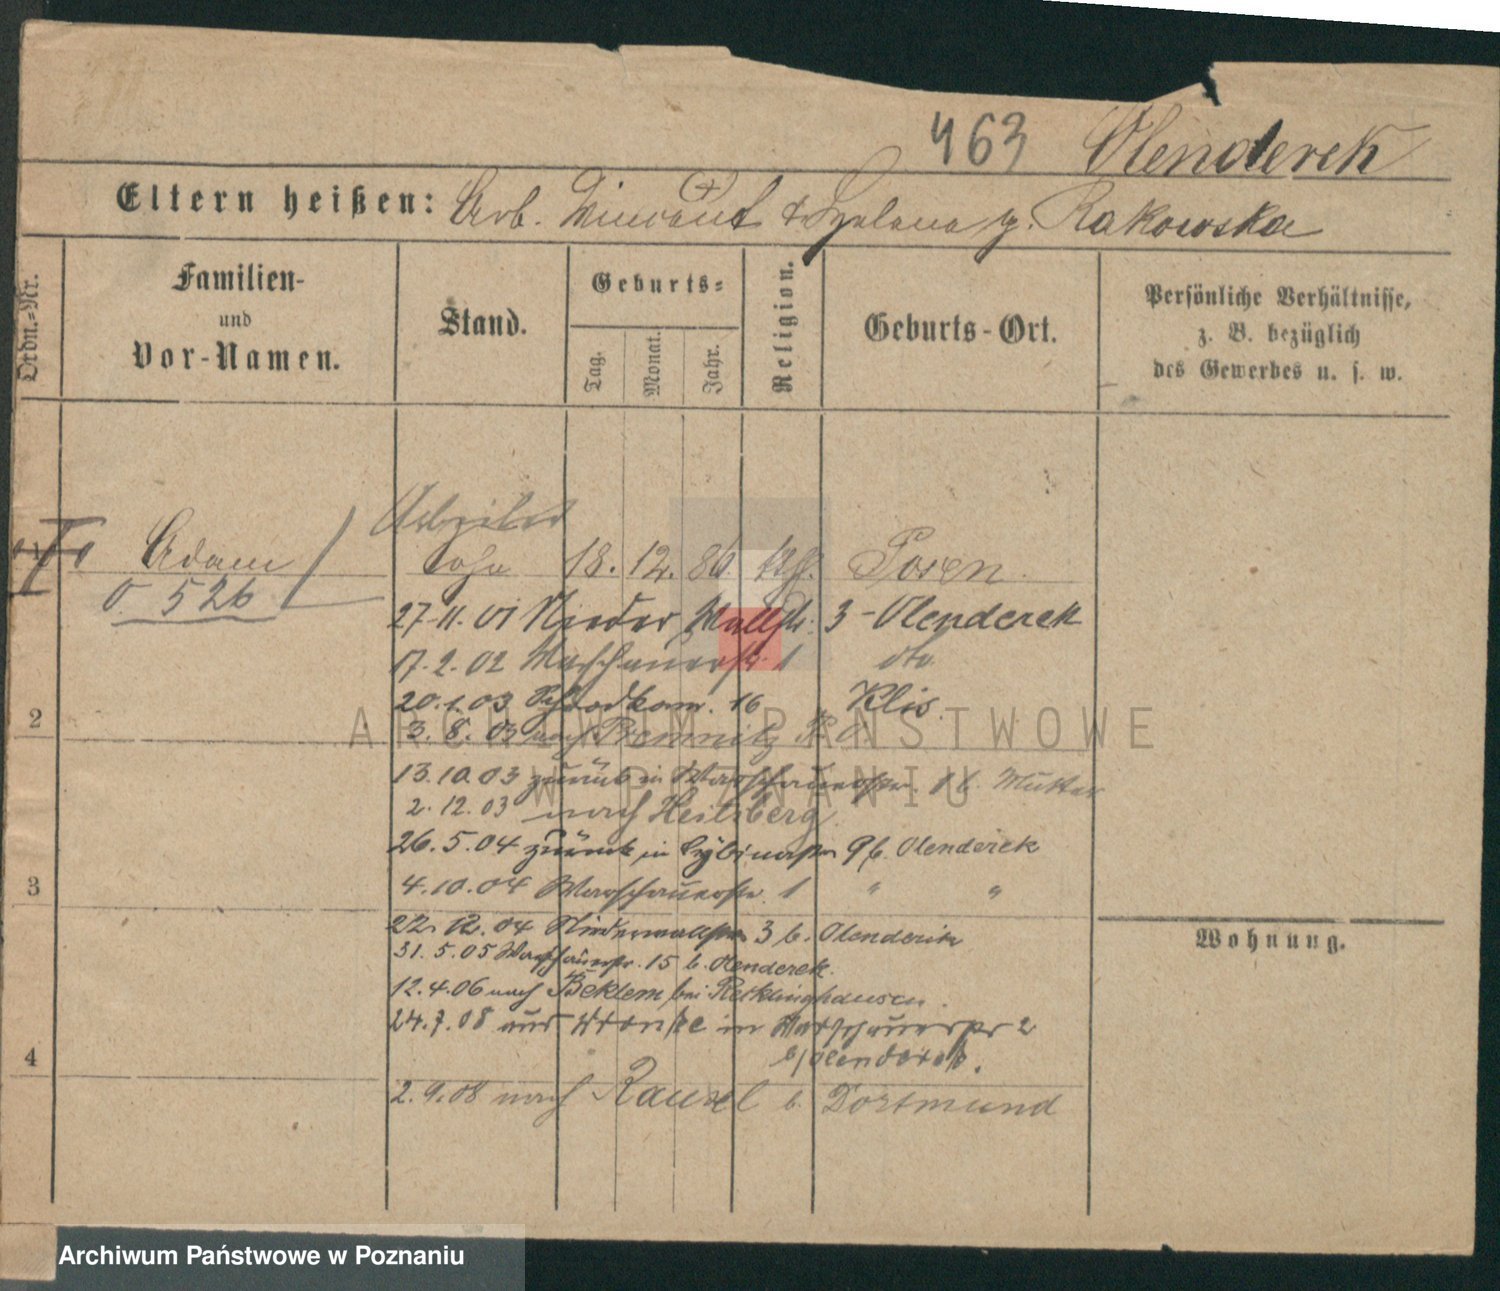 463 Olenderek
Eltern heißen: Arb. Vincent (+) & Helena g. Rakowska
Ordn.-Nr.
Familien-
und
Vor-Namen.
Stand.
Geburts-
Tag.
Monat.
Jahr.
Religion.
Geburts-Ort.
Persönliche Verhältnisse,
z. B. bezüglich
des Gewerbes u. s. w.
Arbeiter
1 Adam Sohn 18. 12. 86. kth. Posen
O. 526
27.11.01 Nieder Wallstr. 3 - Olenderek
17.2.02 Warschauerstr. 1 dto.
20.1.03 16 Klis.
2
3. 8. 03 nach Premnitz
13.10.03 zurück in Warschauerstr. 1 b. Mutter
2. 12. 03 nach Heilsberg
26. 5. 04 zurück in Cybinastr. 9 b. Olenderek
3
4.10.04 Warschauerstr. 1 " "
22. 12. 04 Niederwallstr. 3 b. Olenderek
31. 5. 05 Warschauerstr. 15 b. Olenderek.
12.4.06 nach bei Recklinghausen.
24.7.08 aus in Warschauerstr 2
b/ Olenderek.
4
2. 9. 08 nach Rauxel b. Dortmund
Wohnung.
ARCHIWUM PAŃSTWOWE
W POZNANIU
Archiwum Państwowe w Poznaniu